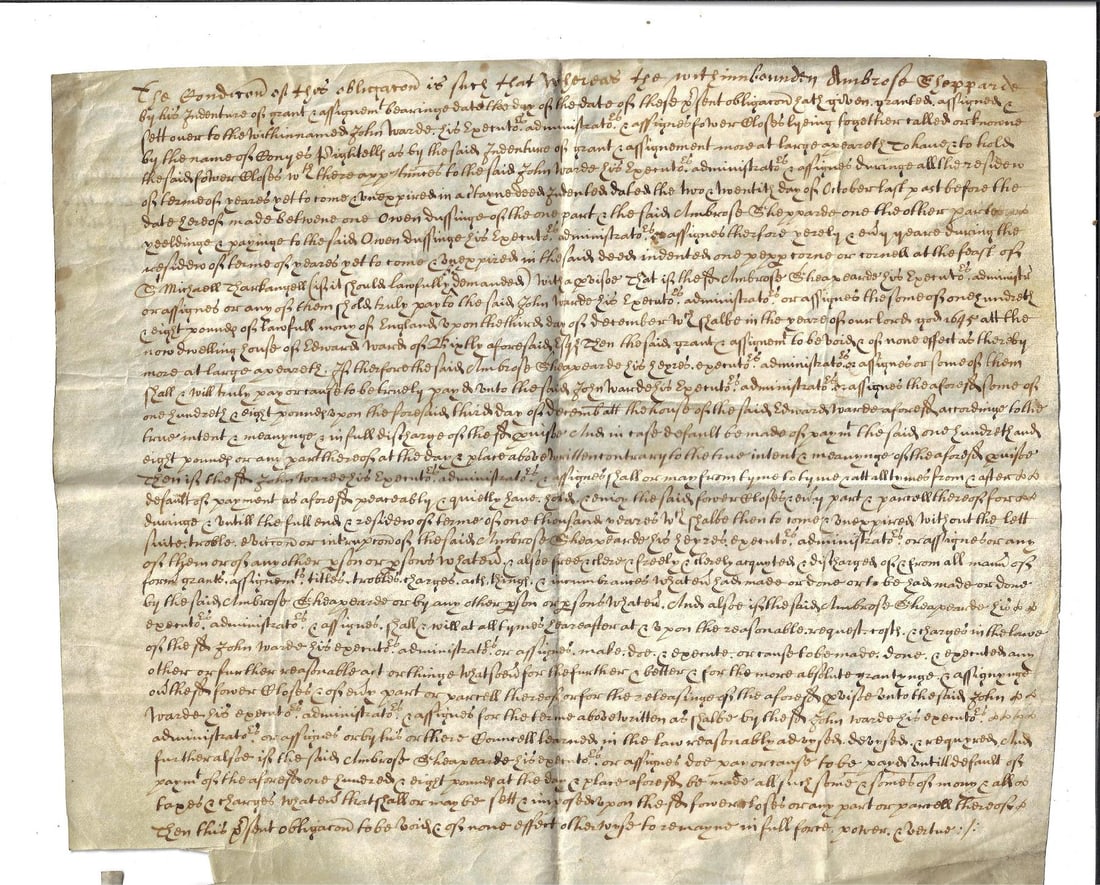 The Condicon of this obligacon is such that Whereas the withinbounden Ambrose Shepparde
by his Indenture of grant & assignemt bearinge date the day of the date of these p̱sent obligacon hath given, granted, assigned &
sett over to the within named John Warde his Executors, administrators, & assignes fower Closes lyeing together called or knowne
by the name of Conyes Pightells as by the said Indenture of grant & assignement more at large apeareth To have & to hold
the said fower Closes wth there apptinnces to the said John Warde his Executors administrators & assignes duringe all the residew
of terme of yeares yet to come & unexpired in a certayne deed Indented dated the two & twentith day of October last past before the
date hereof made betwene one Owen dussinge of the one part & the said Ambrose Shepparde one the other parte
yeeldinge & payinge to the said Owen dussinge his Executors, administrators, & assignes therfore yerely & evy yeare during the
residew of terme of yeares yet to come & unexpired in the said deed indented one pepp corne or cornell at the feast of
St Michaell Tharkangell (if it should lawfully demanded) With a pvisoe That if the sd Ambrose Sheapearde his Executors, administrs
or assignes or any of them shold truly pay to the said John Warde his Executors administrators or assignes the some of one hundreth
& eight pounds of lawfull mony of England, upon the third day of december wch shalbe in the yeare of our lord god 1645 att the
now dwelling house of Edward Ward of aforesaid Then the said grant & assignemt to be voide & of none effect as therby
more at large apeareth. If therfore the said Ambrose Sheapearde his heyres, executors administrators & assignes or some of them
shall & will truly pay or cause to be truely payd unto the said John Warde his Executors administrators & assignes the aforesd some of
one hundreth & eight pounds upon the foresaid third day of decemb att the house of the said Edward Warde aforesd accordinge to the
true intent & meanynge & in full discharge of the sd pvisoe And in case default be made of paymt the said one hundreth and
eight pounds or any part thereof at the day & place above written contrary to the true intent & meanynge of the aforesd pvisoe
Then if the sd John Warde his Executors administrators & assignes shall or may from tyme to tyme & att all tymes from & after
default of payment as aforesd peaceably & quietly have, hold, & enioy the said fower Closes & evy part & parcell thereof for
duringe & untill the full end & residew of terme of one thousand yeares wch shalbe then to come & unexpired, without the lett
suite, troble, eviccon or intrupcon of the said Ambrose Sheapearde his heyres, executors administrators or assignes or any
of them or of any other pson or psons whatevr & alsoe free & clere & freely & clerely acquyted & discharged of & from all mannr of
form grants, assignemts titles, trobles, charges, acts, things, & incumbrances whatevr had made or done or to be had made or done
by the said Ambrose Sheapearde or by any other pson or psons whatevr. And alsoe if the said Ambrose Sheapearde his
executors administrators & assignes, shall & will at all tymes hereafter at & upon the reasonable request, costs & charges in the lawe
of the sd John Warde his executors administrators or assignes, make, doe, & execute, or cause to be made, done, & executed any
other or further reasonable act or thinge whatsoevr for the further & better & for the more absolute grantynge & assignynge
out the sd fower Closes & of evy part or parcell thereof or for the releasinge of the aforesd pvisoe unto the said John
Warde his executors, administrators & assignes for the terme above written as shalbe by the sd John Warde his executors
administrators or assignes or by his or there Councell learned in the law reasonably advysed, devysed, & requyred And
further alsoe if the said Ambrose Sheapearde his executors or assignes doe pay or cause to be payd untill default of
paymt of the aforesd one hundred & eight pounds at the day & place aforesd be made all such some & somes of mony & all
taxes & charges whatevr that shall or may be sett & imposed upon the sd fower closes or any part or parcell thereof
Then this p̱sent obligacon to be void & of none effect otherwyse to remayne in full force, power, & vertue